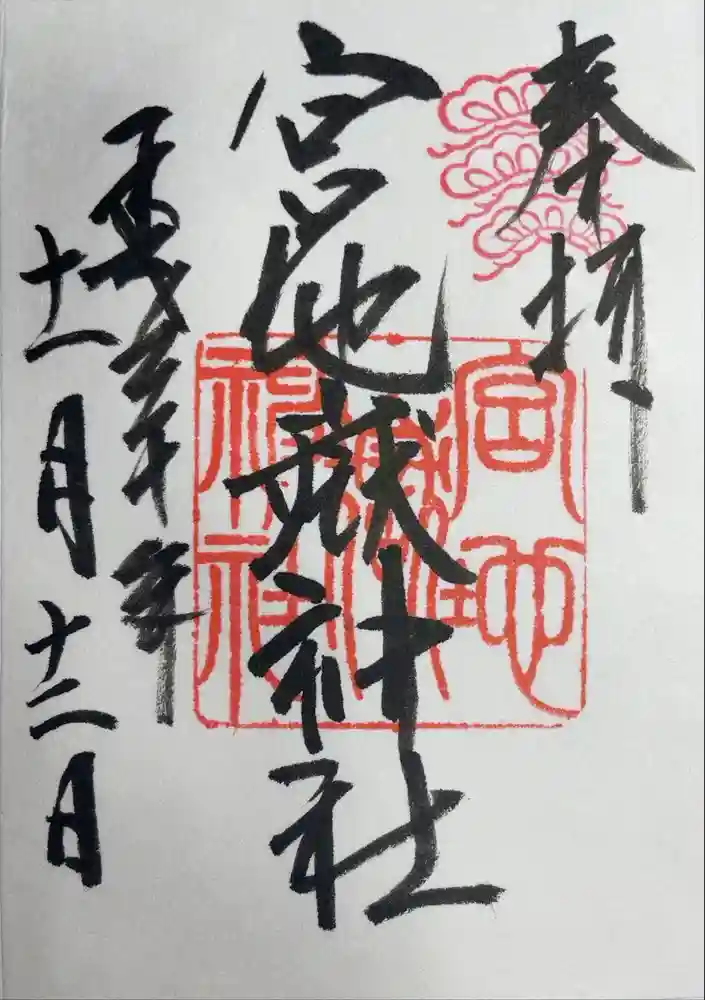 奉拝
宮地嶽神社
平成年
十一月十二日
宮地
嶽
神社